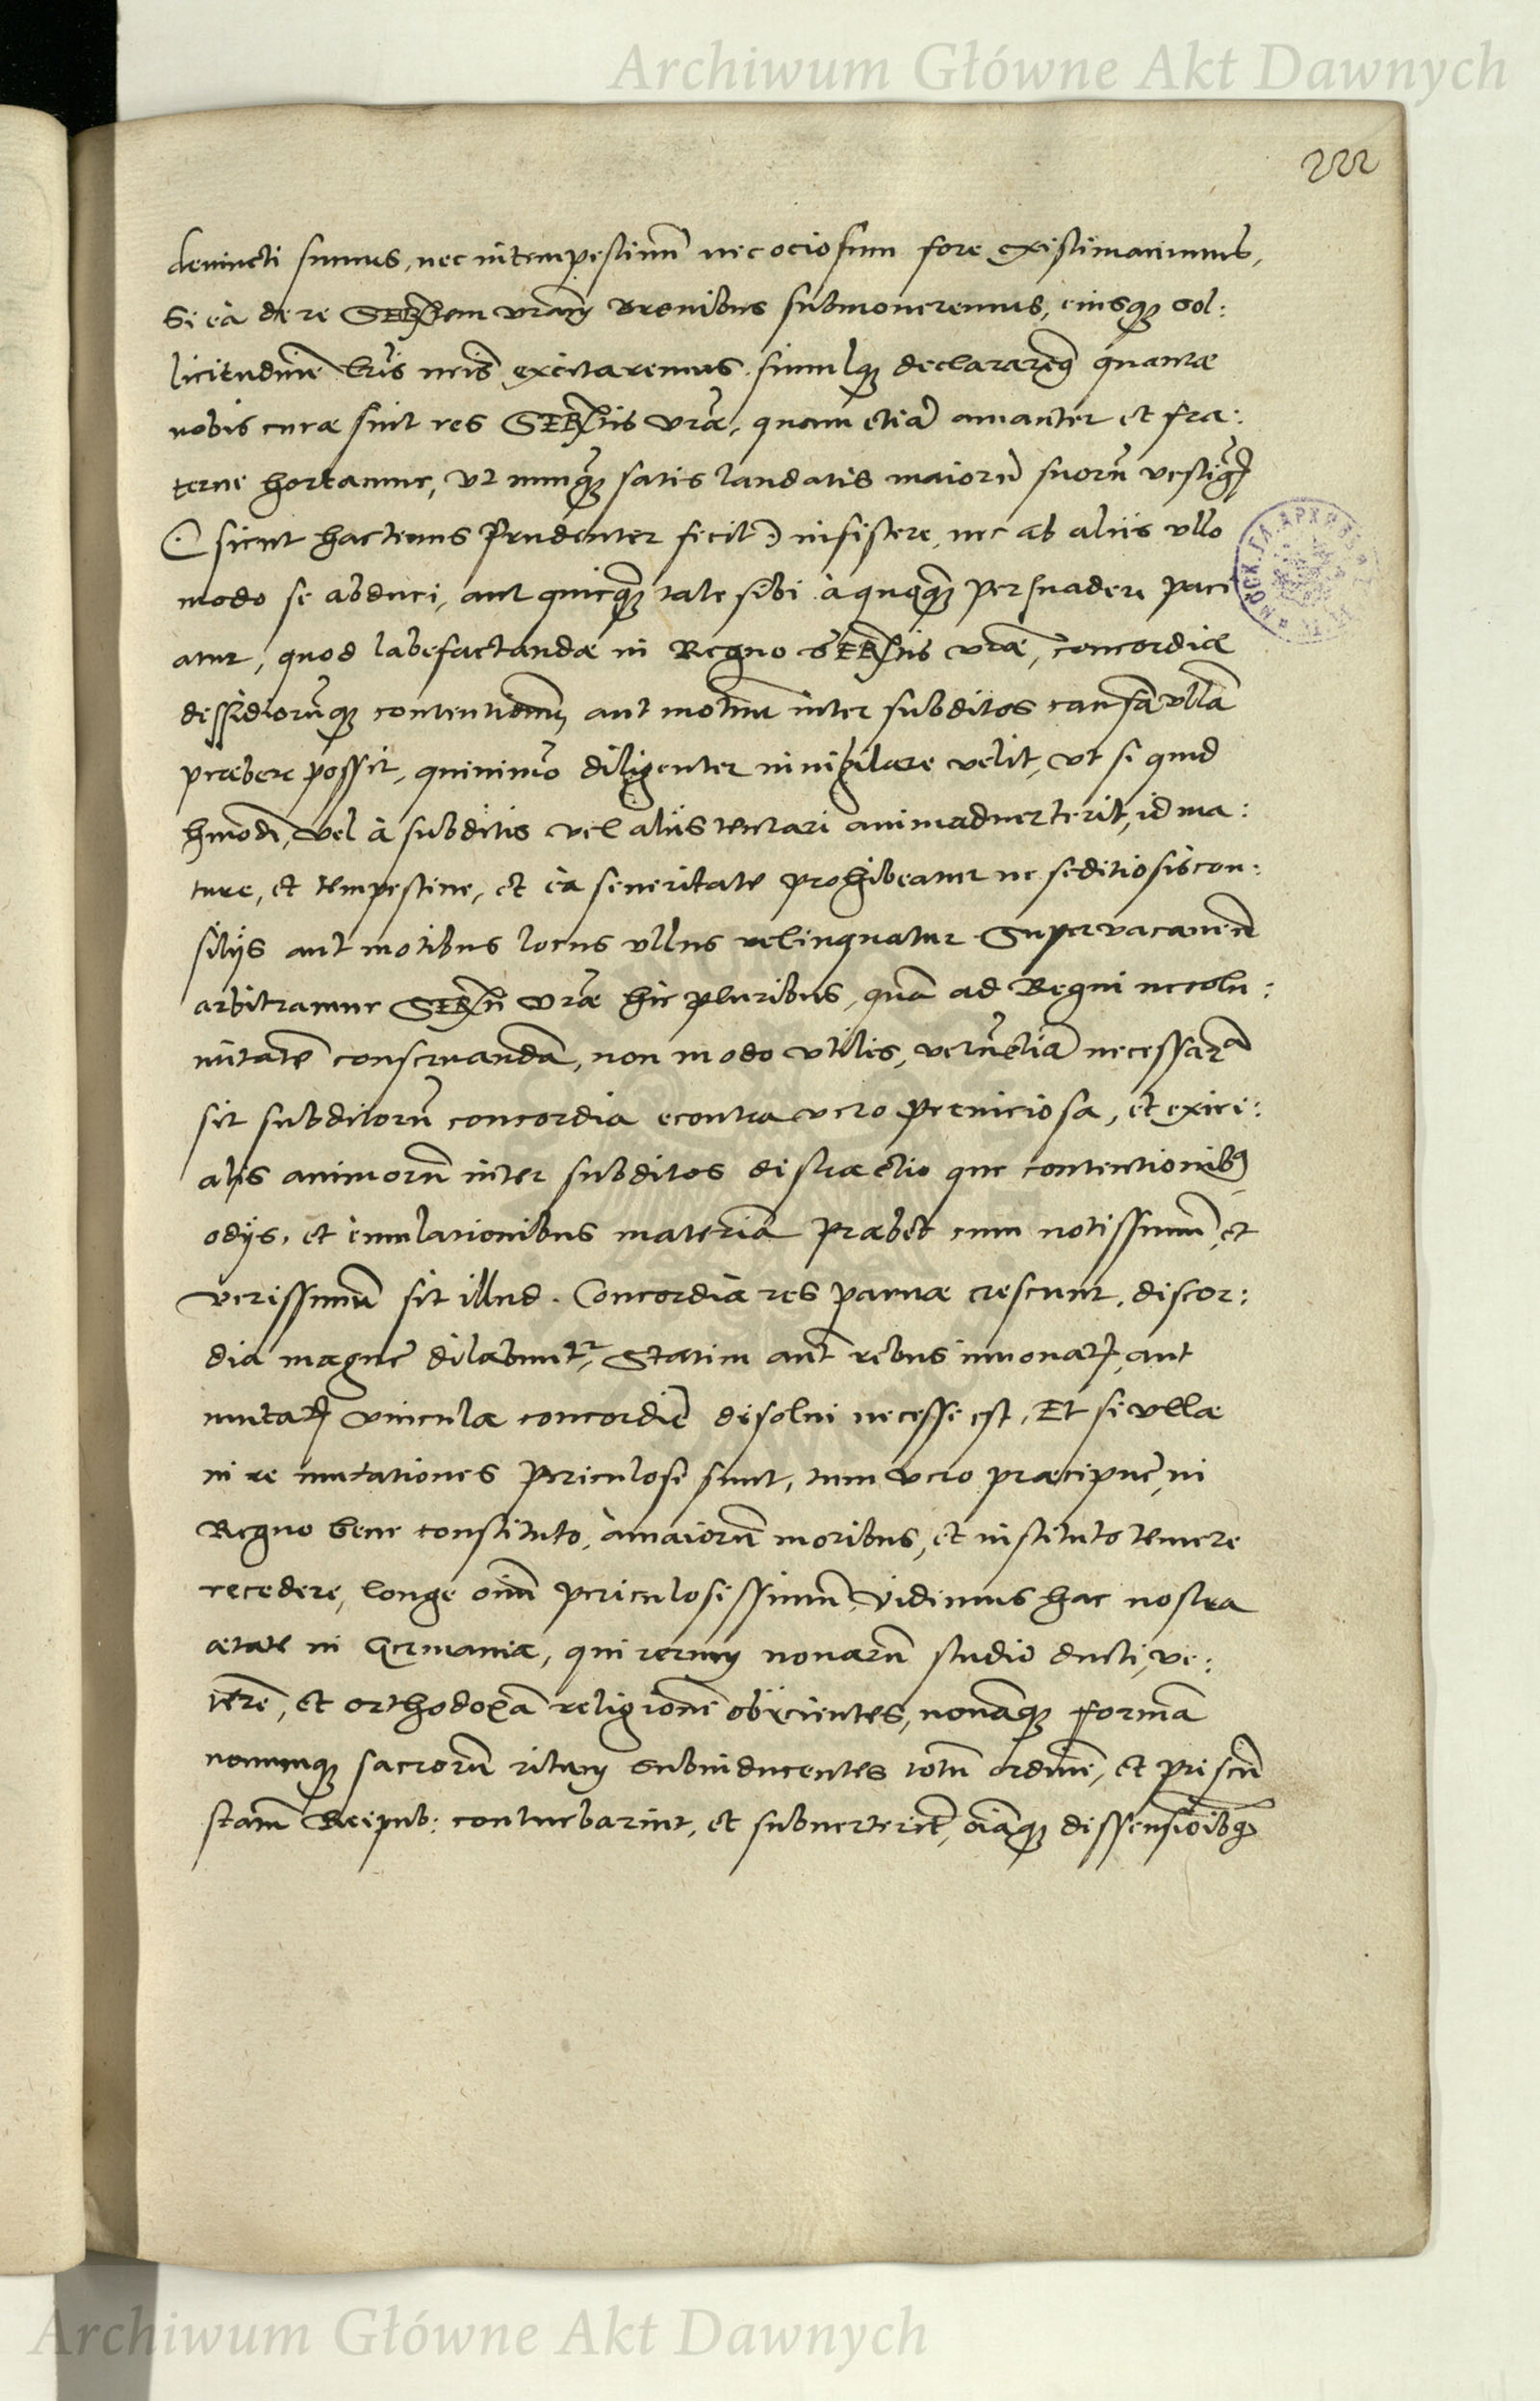 Archiwum Główne Akt Dawnych
222
deuincti sumus, nec intempestiuũ nec ociosum fore existimauimus,
Si eà de re SERtem vrãm breuibus submoneremus, eiusqꝫ sol:
licitudinẽ lrĩs nrĩs excitaremus. simulqꝫ declararemꝰ quantæ
nobis curæ sint res SERtis vrãe, quam etiã amanter et fra:
terne hortamur, vt nunqꝫ satis laudatis maiorũ suorũ vestigijs
(: sicut hactenus prudenter fecit :) insistere, nec ab aliis vllo
modo se abduci, aut quicqꝫ tale sibi à quoqꝫ persuadere paci
atur, quod labefactandæ in Regno SERtis vrãe, concordiæ
dessidiorũqꝫ contentionum, aut motuum inter subditos causã vllã
præbere possit, quinimò diligenter inuigilare velit, vt si quid
hmõdi, vel à subditis vel aliis tentari animaduerterit, id ma:
ture, et tempestiue, et ea seueritate prohibeatur ne seditiosis con:
silijs aut motibus locus vllus relinquatur Superuacaneũ
arbitramur SERti vrãe hic pluribus, quã ad Regni incolu:
mitatẽ conseruandã, non modo vtilis, verũetiã necessaria
sit subditorũ concordia econtra vero perniciosa, et exici:
alis animorũ inter subditos distractio que contentionibꝰ
odijs, et emulationibus materiã præbet cum notissimũ, et
verissimũ sit illud. Concordiã res paruæ crescunt, discor:
dia magnę dilabuntr, Statim autẽ rebus innouatis, aut
mutatis vincula concordię disolui necesse est, Et si vlla
in re mutationes periculosę sunt, tum vero præcipuè, in
Regno bene constituto, à maiorũ moribus, et instituto temere
recedere, longe oĩm periculosissimũ, vidimus hac nostra
ætate in Germania, qui rerum nouarũ studio ducti, ve:
terẽ, et orthodoxã religionẽ obijcientes, nouãqꝫ formã
nouumqꝫ sacrorũ ritum subinducentes totũ ordinẽ, et priscũ
statũ Reipub: conturbarint, et subuerterint, oĩaqꝫ dissensiõibꝰ
Archiwum Główne Akt Dawnych